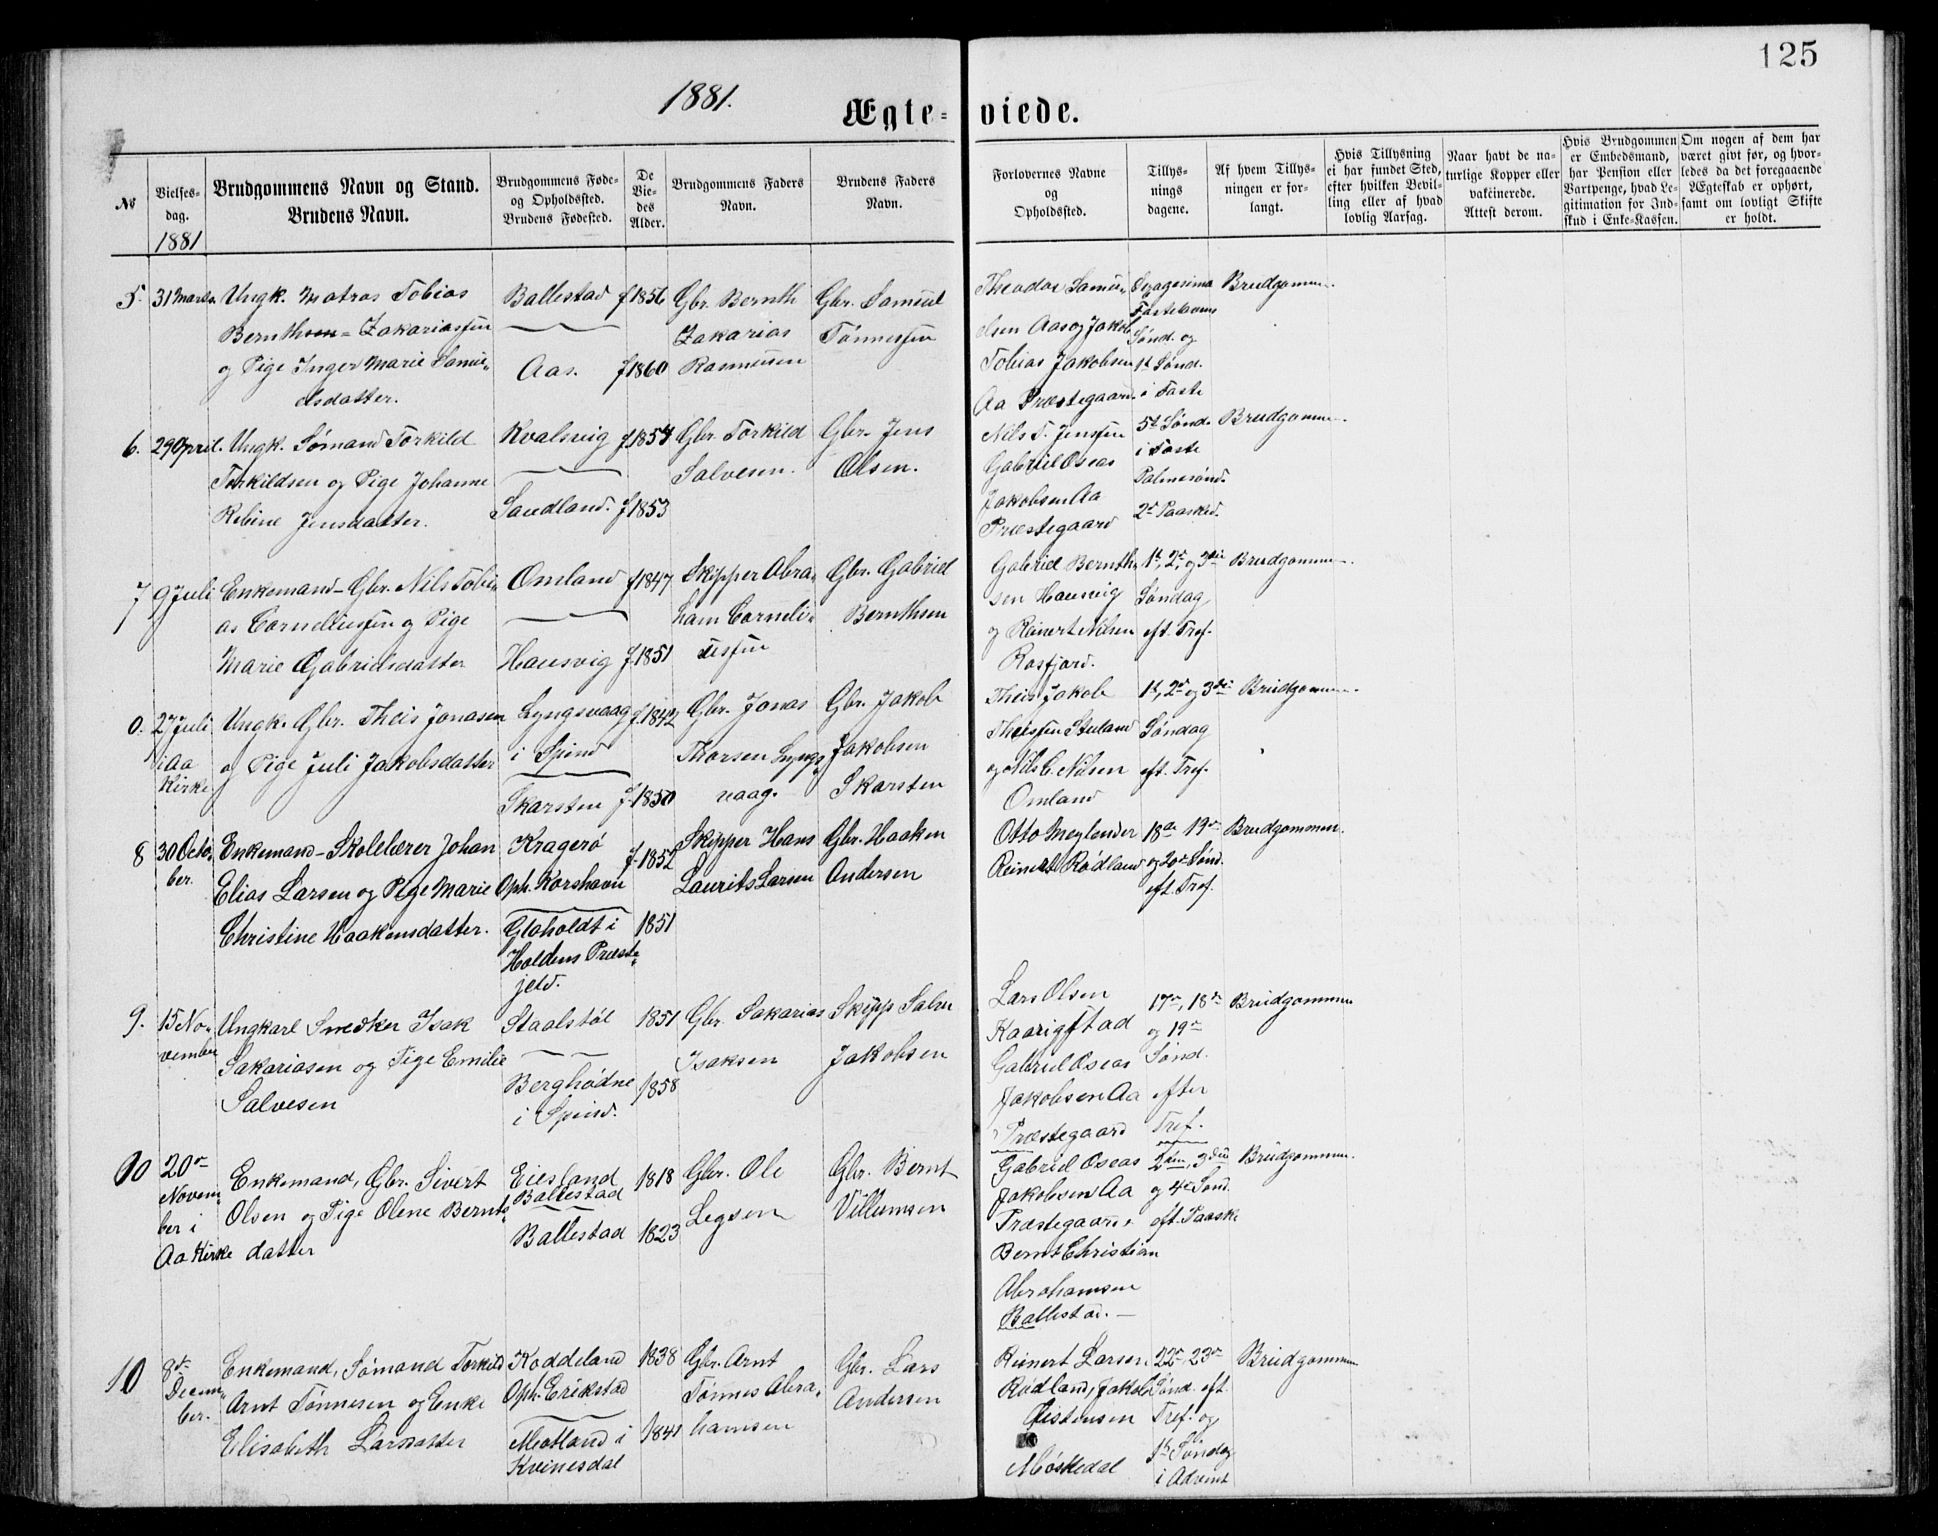 125
1881.
Ægte-viede.
No
Vielses-
dag.
1881
Brudgommens Navn og Stand.
Brudens Navn.
Brudgommens Føde-
og Opholdssted.
Brudens Fødested.
De
Vie-
des
Alder.
Brudgommens Faders
Navn.
Brudens Faders
Navn.
Forlovernes Navne
og
Opholdssted.
Tillys-
nings
dagene.
Af hvem Tillys-
ningen er for-
langt.
Hvis Tillysning
ei har fundet Sted,
efter hvilken Bevil-
ling eller af hvad
lovlig Aarsag.
Naar havt de na-
turlige Kopper eller
vakcinerede.
Attest derom.
Hvis Brudgommen
er Embedsmand,
har Pension eller
Vartpenge, hvad Le-
gitimation for Ind-
skud i Enke-Kassen.
Om nogen af dem har
været givt før, og hvor-
ledes da det foregaaende
Ægteskab er ophørt,
samt om lovligt Skifte
er holdt.
5.
31 Marts.
Ungk. Matros Tobias
Bernthsen - Zakariassen
og Pige Inger Marie Samu-
elsdatter.
Ballestad f 1856
Aas. f 1860
Gbr. Bernth
Zakarias
Rasmusen
Gbr. Samuel
Tønnessen
Theodor Samu-
elsen Aas og Jakob
Tobias Jakobsen
Aa Præstegaard.
Sexagesima
Fastelavns
Sønd. og
1t Sønd.
i Faste
Brudgommen.
6.
29 April.
Ungk. Sømand Torkild
Torkildsen og Pige Johanne
Rebine Jensdatter.
Kvalsvig f 1854
Sandland. f 1853
Gbr. Torkild
Salvesen.
Gbr. Jens
Olsen.
Nils T. Jensen
Gabriel Oseas
Jakobsen Aa
Præstegaard
5t Sønd.
i Faste
Palmesønd.
2n Paasked.
Brudgommen.
7
9 Juli
Enkemand - Gbr. Nils Tobi-
as Corneliussen og Pige
Marie Gabrielsdatter
Omland f 1847
Hausvig f. 1851
Skipper Abra-
ham Corneli-
ussen
Gbr. Gabriel
Bernthsen
Gabriel Bernth-
sen Hausvig
og Reinert Nilsen
Rosfjord.
1t, 2n, og 3die
Søndag
eft. Tref.
Brudgommen.
0.
27 Juli
i Aa
Kirke
Ungk. Gbr. Theis Jonasen
og Pige Juli Jakobsdatter
Lyngsvaag f. 1842
i Spind
Skarsten f. 1850
Gbr. Jonas
Thorsen Lyngs-
vaag.
Gbr. Jakob
Jakobsen
Skarsten
Theis Jakob
Theissen Stuland
og Nils C. Nilsen
Omland
1t, 2n og 3die
Søndag
eft. Tref.
Brudgommen.
8
30 Octo-
ber.
Enkemand - Skolelærer Johan
Elias Larsen og Pige Marie
Christine Haakensdatter.
Kragerø f. 1852
Oph. Korshavn
Gloholdt i 1851
Holdens Præste-
jeld.
Skipper Hans
Laurits Larsen
Gbr. Haaken
Andersen
Otto Meylender
Reinert Rødland
18de 19n
og 20n Sønd.
eft. Tref.
Brudgommen.
9.
15 No-
vember
Ungkarl Snedker Isak
Sakariasen og Pige Emilie
Salvesen
Staalstøl 1851
Berghødne 1858
i Spind.
Gbr. Sakarias
Isaksen
Skipp Salve
Jakobsen
Lars Olsen
Kaarigstad
Gabriel Oseas
Jakobsen Aa
Præstegaard
17n, 18n
og 19n
Sønd.
efter
Tref.
Brudgommen
10
20n
Novem-
ber i
Aa Kirke
Enkemand, Gbr. Sivert
Olsen og Pige Olene Bernts-
datter
Eiesland 1818
Ballestad
Ballestad 1823
Gbr. Ole
Legsen
Gbr. Bernt
Villumsen
Gabriel Oseas
Jakobsen Aa
Præstegaard
Bernt Christian
Abrahamsen
Ballestad. —
2den, 3die
og 4e Sønd.
eft. Paaske
Brudgommen.
10
8n
Decem-
ber.
Enkemand, Sømand Torkild
Arnt Tønnesen og Enke
Elisabeth Larsdatter
Koddeland 1838
Oph. Erikstad
Motland i 1841
Kvinesdal
Gbr. Arnt
Tønnes Abra-
hamsen
Gbr. Lars
Andersen
Reinert Larsen
Rødland, Jakob
Møskedal
22n 23n
Sønd. eft.
Tref. og
1t Søndag
i Advent
Brudgommen